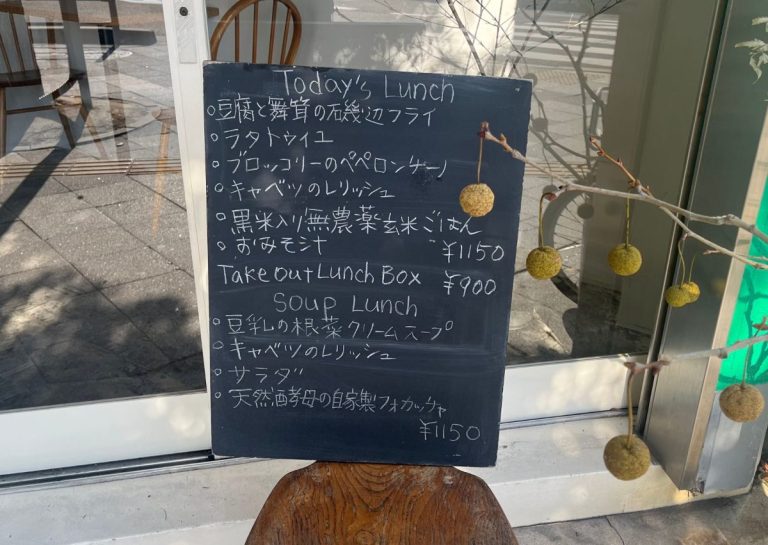 Today's Lunch
○豆腐と舞茸の石磯辺フライ
○ラタトゥイユ
○ブロッコリーのペペロンチーノ
○キャベツのレリッシュ
○黒米入り無農薬玄米ごはん
○おみそ汁 ¥1150
Take out Lunch Box ¥900
Soup Lunch
○豆乳の根菜クリームスープ
○キャベツのレリッシュ
○サラダ
○天然酒孝母の自家製フォカッチャ
¥1150